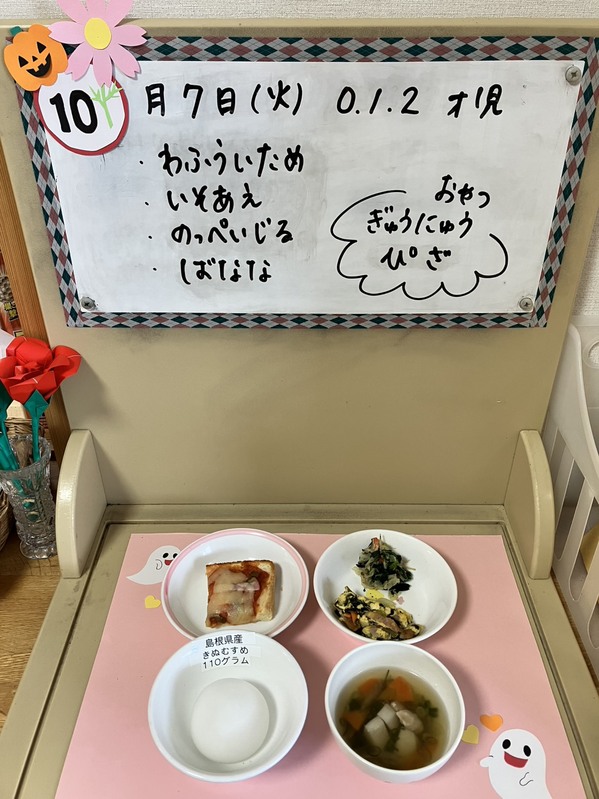 10月7日(火) 0.1.2 才児
・わふういため
・いそあえ
・のっぺいじる
・ばなな
おやつ
ぎゅうにゅう
ぴざ
島根県産
きぬむすめ
110グラム